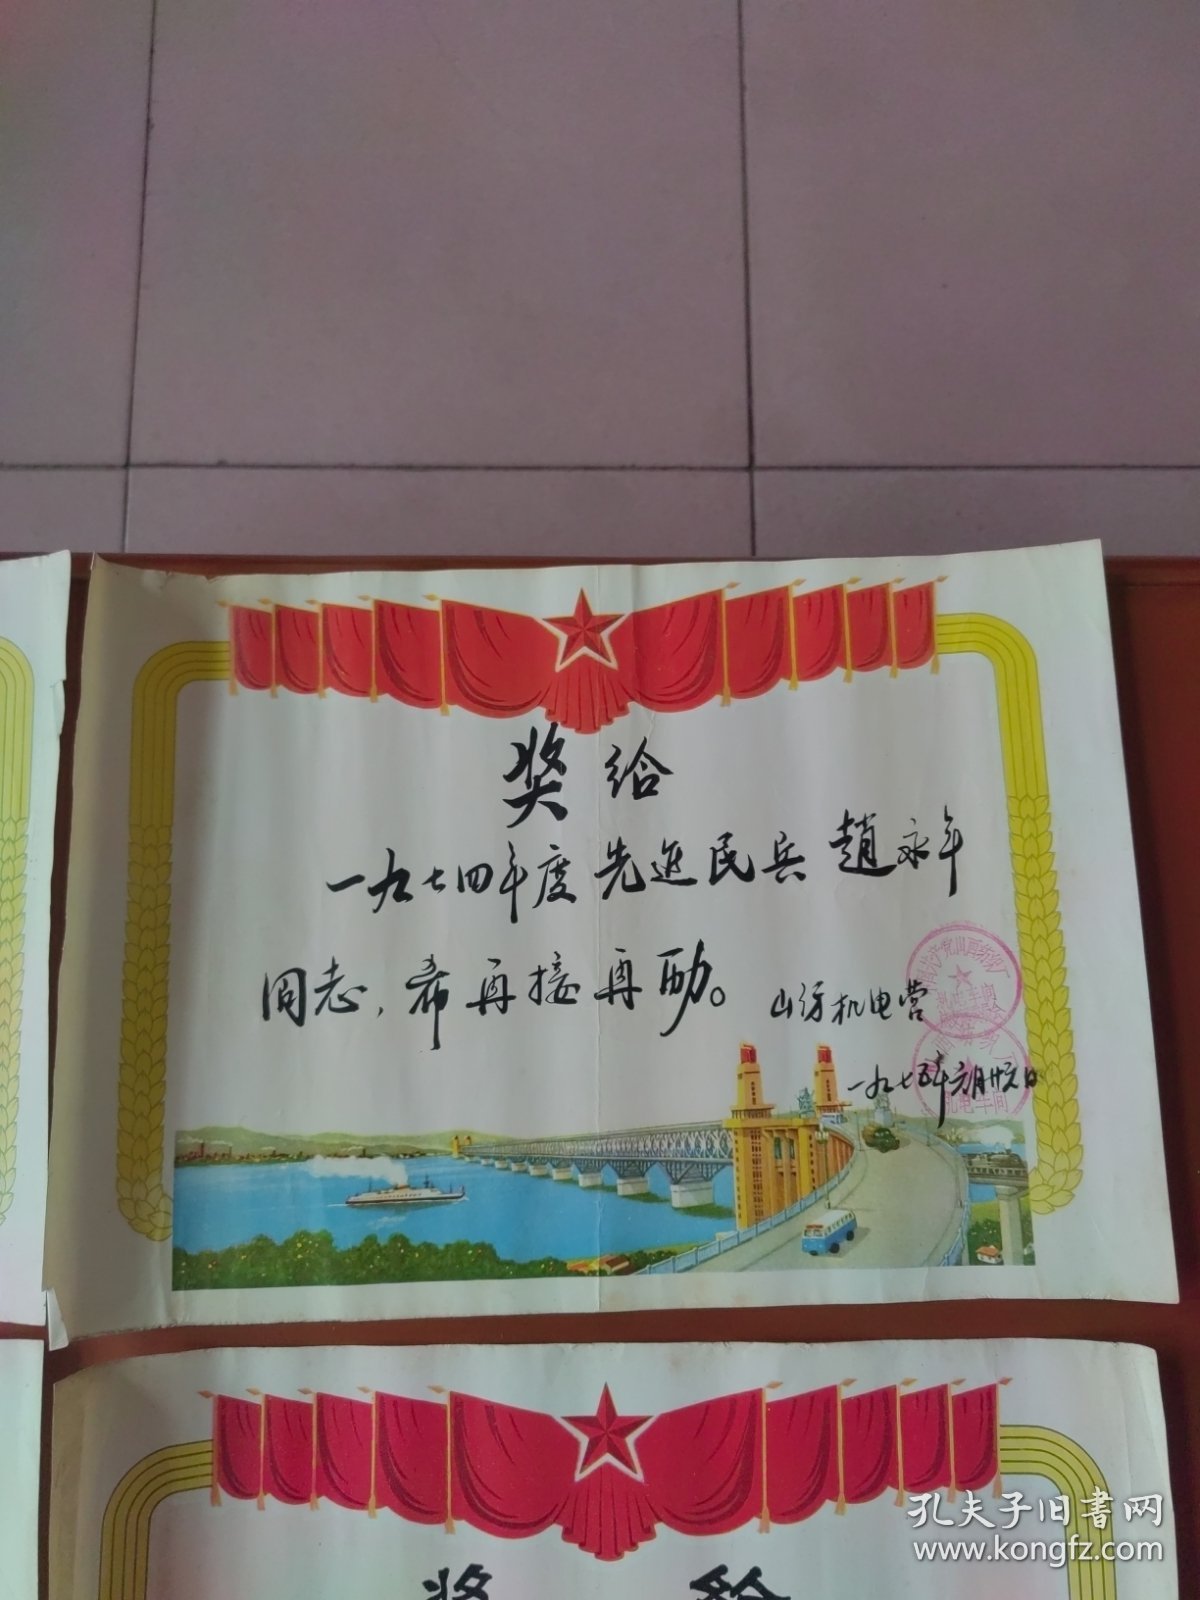 奖给
一九七四年度先進民兵趙永年
同志,希再接再励。
山纺机电营
一九七五年六月廿六日
机电车间
奖给
孔夫子旧书网
www.kongfz.com